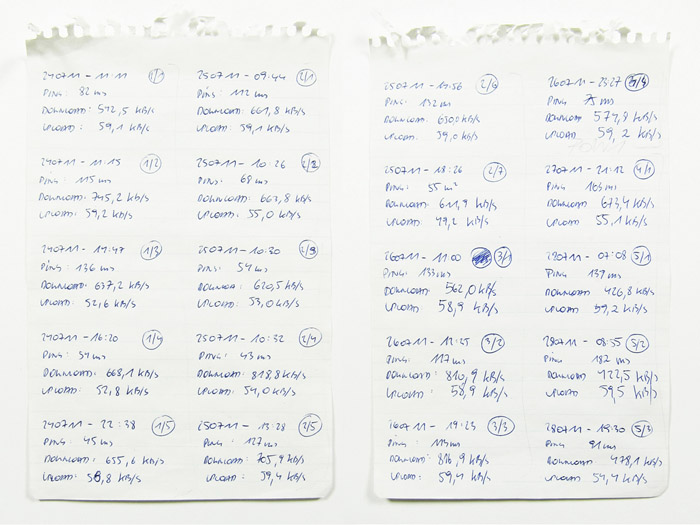 240711 - 11:11 1/1
PING: 82 ms
DOWNLOAD: 542,5 KB/s
UPLOAD: 59,1 KB/s
240711 - 11:15 1/2
PING: 115 ms
DOWNLOAD: 745,2 KB/s
UPLOAD: 59,2 KB/s
240711 - 14:47 1/3
PING: 136 ms
DOWNLOAD: 637,2 KB/s
UPLOAD: 52,6 KB/s
240711 - 16:20 1/4
PING: 54 ms
DOWNLOAD: 668,1 KB/s
UPLOAD: 52,8 KB/s
240711 - 22:38 1/5
PING: 45 ms
DOWNLOAD: 655,6 KB/s
UPLOAD: 56,8 KB/s
250711 - 09:44 2/1
PING: 112 ms
DOWNLOAD: 661,8 KB/s
UPLOAD: 59,1 KB/s
250711 - 10:26 2/2
PING: 68 ms
DOWNLOAD: 663,8 KB/s
UPLOAD: 55,0 KB/s
250711 - 10:30 2/3
PING: 54 ms
DOWNLOAD: 620,5 KB/s
UPLOAD: 53,0 KB/s
250711 - 10:32 2/4
PING: 43 ms
DOWNLOAD: 818,8 KB/s
UPLOAD: 54,0 KB/s
250711 - 13:28 2/5
PING: 127 ms
DOWNLOAD: 705,9 KB/s
UPLOAD: 59,4 KB/s
250711 - 14:56 2/6
PING: 132 ms
DOWNLOAD: 630,0 KB/s
UPLOAD: 39,0 KB/s
250711 - 18:26 2/7
PING: 55 ms
DOWNLOAD: 611,9 KB/s
UPLOAD: 49,2 KB/s
260711 - 11:00 3/1
PING: 133 ms
DOWNLOAD: 562,0 KB/s
UPLOAD: 58,9 KB/s
260711 - 12:25 3/2
PING: 117 ms
DOWNLOAD: 810,9 KB/s
UPLOAD: 58,9 KB/s
260711 - 19:23 3/3
PING: ms
DOWNLOAD: 816,9 KB/s
UPLOAD: 59,4 KB/s
260711 - 23:27
PING 75 ms
DOWNLOAD 574,8 KB/s
UPLOAD 59,2 KB/s
270711 - 21:12 4/1
PING ms
DOWNLOAD: 673,4 KB/s
UPLOAD: 55,1 KB/s
280711 - 07:08 5/1
PING 137 ms
DOWNLOAD 426,8 KB/s
UPLOAD 59,2 KB/s
280711 - 08:55 5/2
PING 182 ms
DOWNLOAD 422,5 KB/s
UPLOAD 59,5 KB/s
280711 - 19:30 5/3
PING: 91 ms
DOWNLOAD: 478,1 KB/s
UPLOAD: 54,4 KB/s